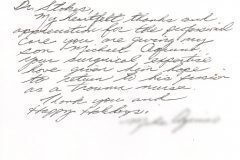 Dr. Stokes,
My heartfelt thanks and
appreciation for the professional
care you are giving my
son Michael
your surgical expertise
have given him
to return to his passion
as a trauma nurse.
Thank you and
Happy Holidays.